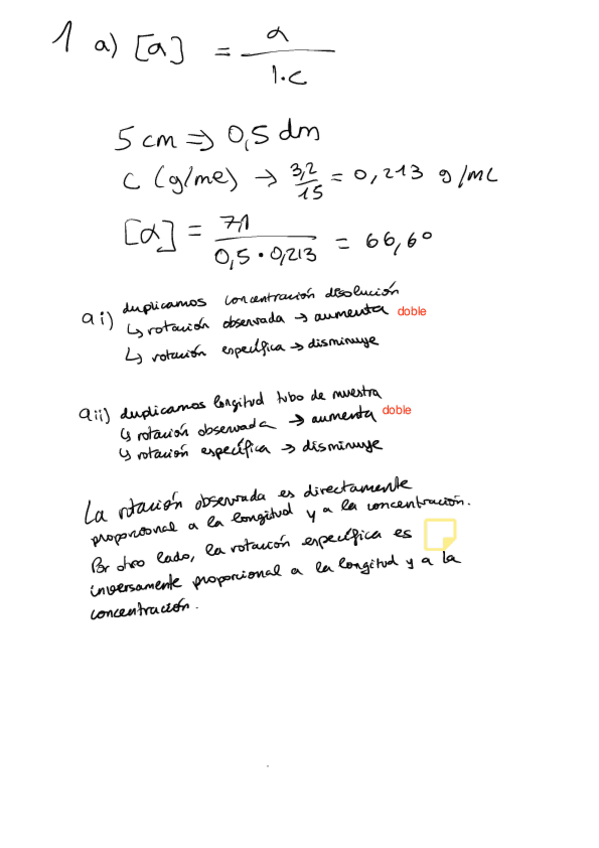 1 a) [α] = α / l·c
5 cm ⇒ 0,5 dm
C (g/mL) → 3,2/15 = 0,213 g/mL
[α] = 7,1 / 0,5 · 0,213 = 66,6°
a i) duplicamos concentración disolución
↳ rotación observada → aumenta doble
↳ rotación específica → disminuye
a ii) duplicamos longitud tubo de muestra
↳ rotación observada → aumenta doble
↳ rotación específica → disminuye
La rotación observada es directamente
proporcional a la longitud y a la concentración.
Por otro lado, la rotación específica es
inversamente proporcional a la longitud y a la
concentración.